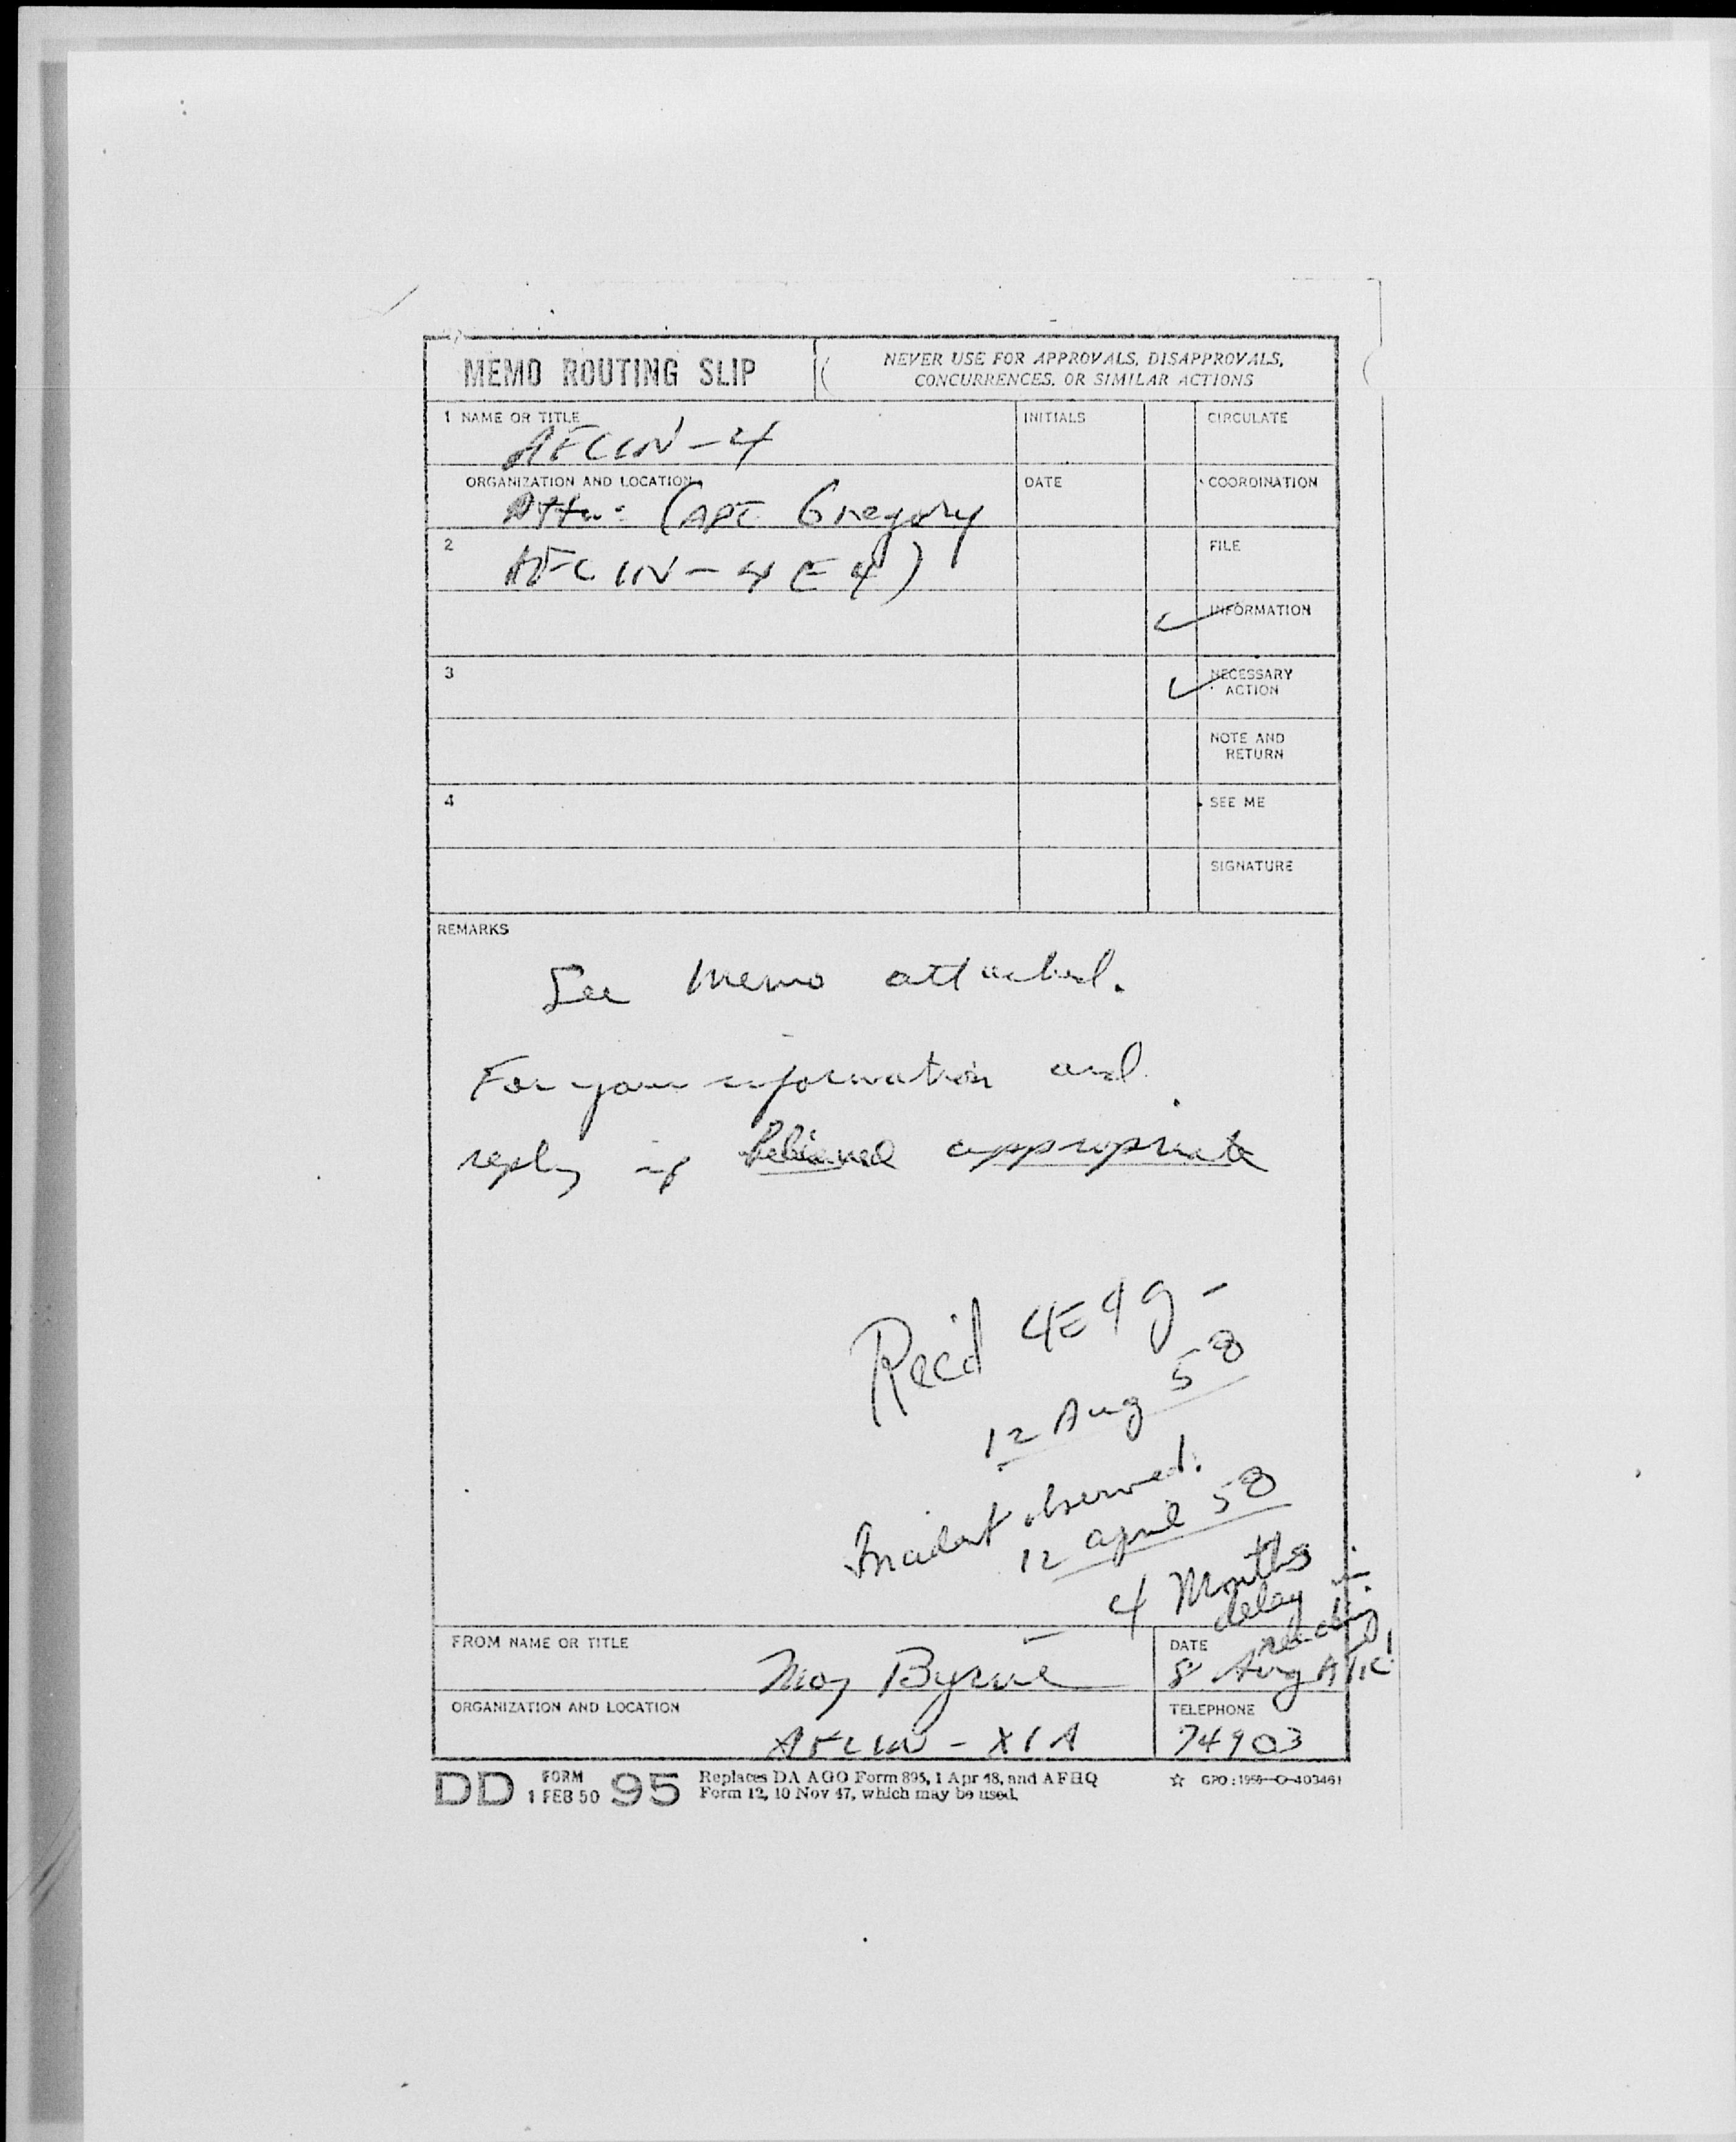 MEMO ROUTING SLIP
NEVER USE FOR APPROVALS, DISAPPROVALS,
CONCURRENCES, OR SIMILAR ACTIONS
1 NAME OR TITLE
AFCIN-4
INITIALS
CIRCULATE
ORGANIZATION AND LOCATION
Attn: (CAPT Gregory
DATE
COORDINATION
2
AFCIN-4E4)
FILE
INFORMATION
3
NECESSARY
ACTION
NOTE AND
RETURN
4
SEE ME
SIGNATURE
REMARKS
See Memo attached.
For your information and
reply if believed appropriate
Rec'd 4E4g -
12 Aug 58
Incident observed.
12 april 58
4 Months
delay in
reaching
ATIC
FROM NAME OR TITLE
Maj Byrne
DATE
8 Aug
ORGANIZATION AND LOCATION
AFCIN-X1A
TELEPHONE
74903
DD FORM 1 FEB 50 95
Replaces DA AGO Form 895, 1 Apr 48, and AFHQ
Form 12, 10 Nov 47, which may be used.
☆ GPO: 1956-O-403461